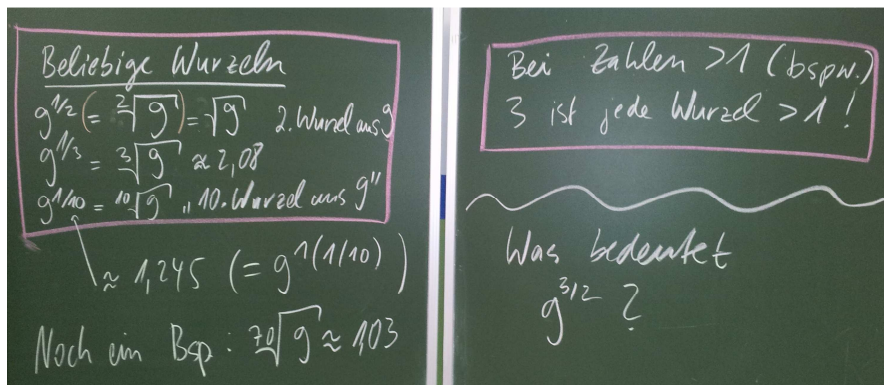 Beliebige Wurzeln
9^1/2 (= ²√9) = √9 2. Wurzel aus 9
9^1/3 = ³√9 ≈ 2,08
9^1/10 = ¹⁰√9 „10. Wurzel aus 9"
≈ 1,245 (= 9^(1/10))
Noch ein Bsp: ⁷⁰√9 ≈ 1,03
Bei Zahlen >1 (bspw.)
3 ist jede Wurzel >1!
Was bedeutet
9^3/2 ?